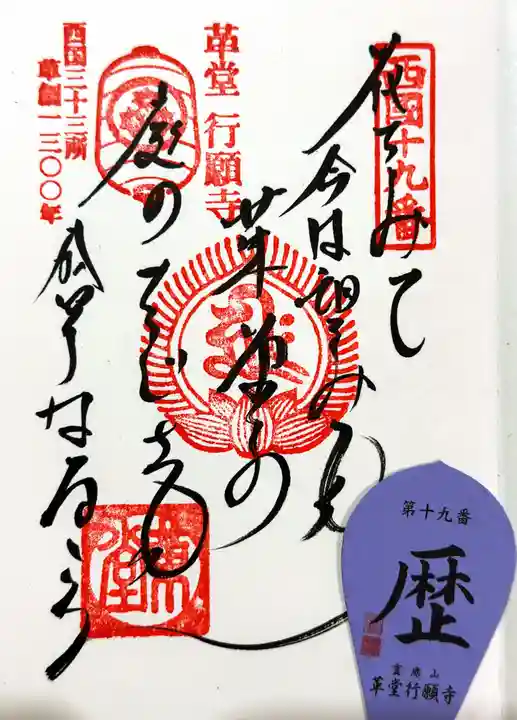 西國十九番
花を見て
今は望みも
革堂の
庭の千草も
盛りなるらん
革堂 行願寺
西国三十三所
草創一三〇〇年
革堂
第十九番
歴
霊麀山
革堂行願寺